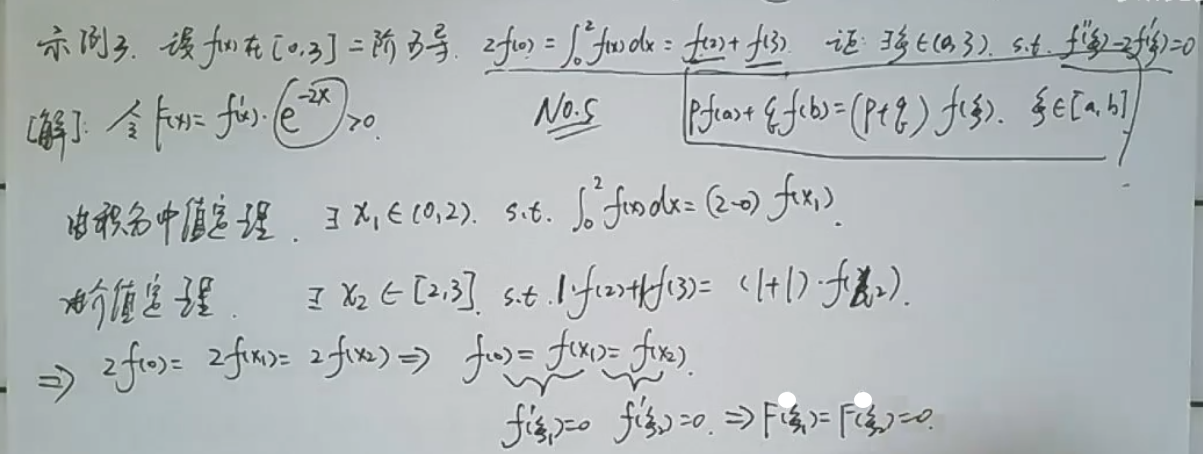 示例3. 设f(x)在[0,3]二阶可导. 2f(0)=∫₀²f(x)dx=f(2)+f(3). 证:∃ξ∈(0,3). s.t. f''(ξ)-2f'(ξ)=0
[解]: 令F(x)=f'(x)·e^{-2x}>0. No.5 pf(a)+qf(b)=(p+q)f(ξ). ξ∈[a,b]
由积分中值定理. ∃x₁∈(0,2). s.t. ∫₀²f(x)dx=(2-0)f(x₁).
由介值定理. ∃x₂∈[2,3]. s.t. 1·f(2)+1·f(3)=(1+1)·f(x₂).
⇒ 2f(0)=2f(x₁)=2f(x₂)⇒ f(0)=f(x₁)=f(x₂).
f'(ξ₁)=0 f'(ξ₂)=0. ⇒F(ξ₁)=F(ξ₂)=0.